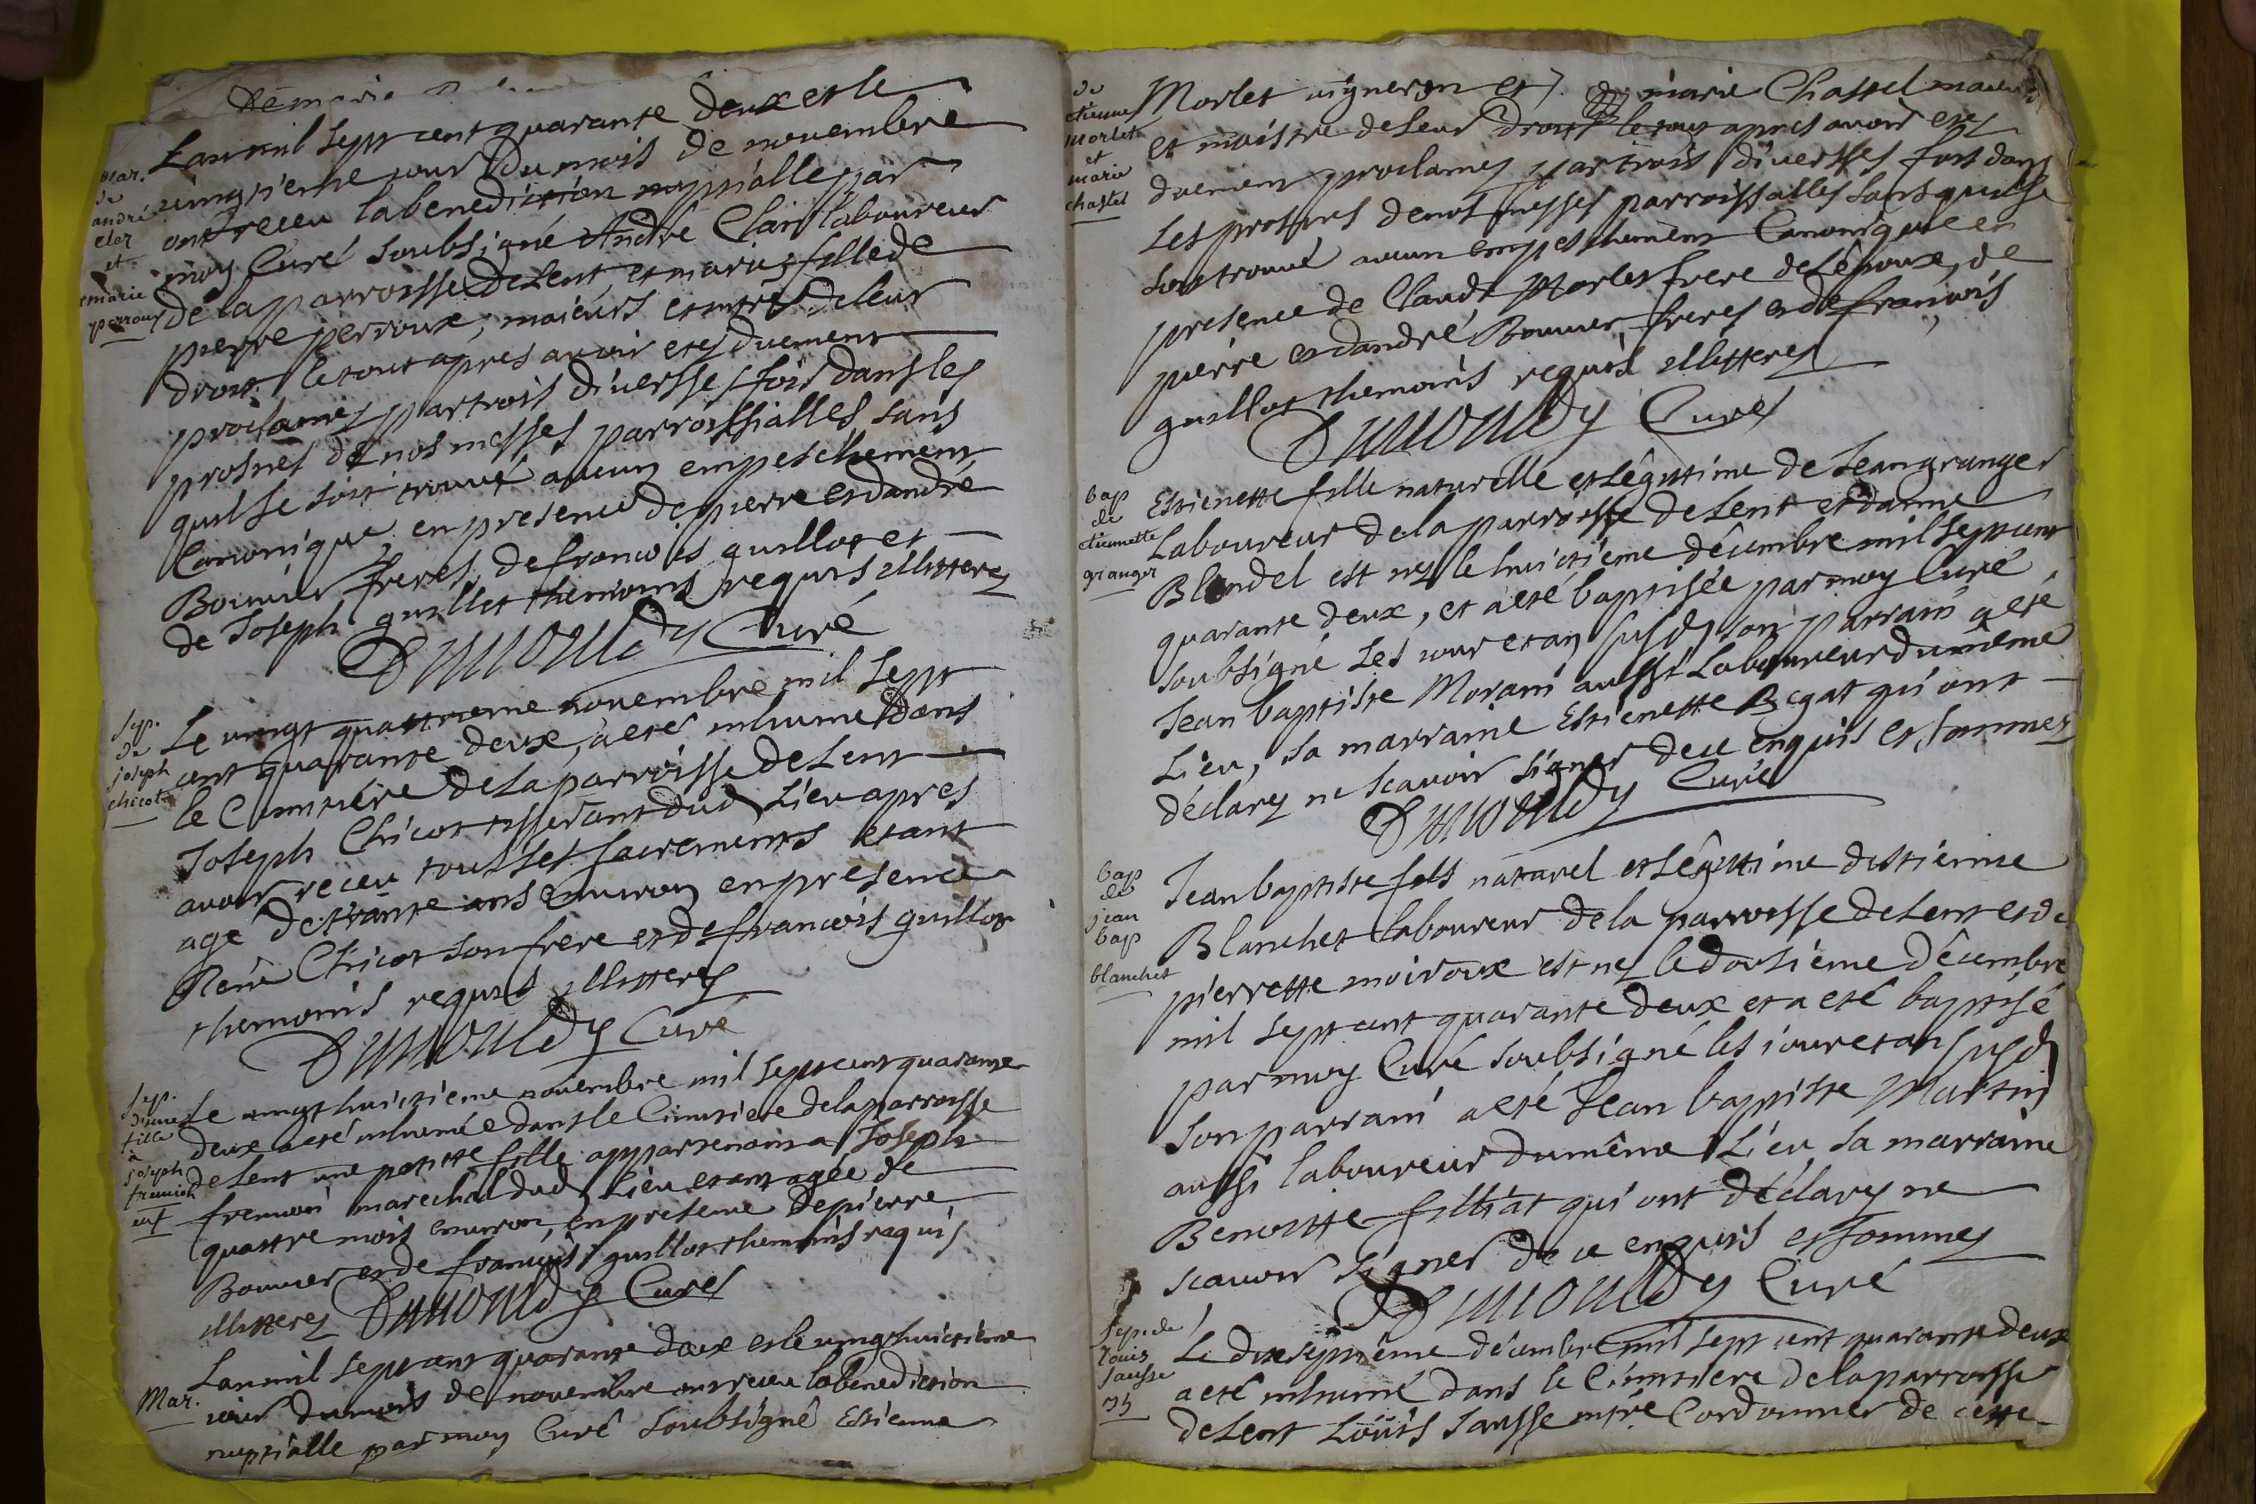 De marie
mar.
de
andré
cler
et
marie
perroux
Lan mil sept cent quarante deux et le
vingtieme jour du mois de novembre
ont receu la benediction nuptialle par
moy Curé soubsigné André Clair laboureur
de la parroisse de Lent, et marie fille de
pierre perroux, maieurs et mtres de leur
droit. le tout apres avoir etes duement
proclamez par trois diversses fois dans les
prosnes de nos messes parroissialles sans
quil se soit trouvé aucun empeschement
Canonique en presence de pierre et dandré
Bouvier freres, de francois guillot et
de Joseph guillot themoins requis illitterez
Dumouldy Curé
sep.
de
joseph
chicot
Le vingt quattrieme novembre mil sept
cent quarante deux, a eté inhumé dans
le Cimitiere de la parroisse de Lent
Joseph Chicot tisserant dud lieu apres
avoir receu tous les sacrements etant
agé de trante ans Environ en presence
René Chicot son frere et de francois guillot
themoins requis illitterez
Dumouldy Curé
sep.
d'une
fille
a
joseph
fremion
enf
Le vingt huictieme novembre mil sept cent quarante
deux a eté inhumée dans le Cimitiere de la parroisse
de Lent une petitte fille appartenant a Joseph
fremion marechal dud lieu etant agée de
quattre mois environ, en presence de pierre
Bouvier et de francois guillot themoins requis
illitterez Dumouldy Curé
Mar.
Lan mil sept cent quarante deux et le vingt huictieme
jour du mois de novembre ont receu la benediction
nuptialle par moy Curé soubsigné Estienne
de
etienne
morlet
et
marie
chastel
Morlet vigneron et marie Chastel maieurs
et maistre de leur droit le tout apres avoir etes
duement proclamez par trois diversses fois dans
Les prosnes de nos messes parroissialles sans quil se
soit trouvé aucun empeschement Canonique en
presence de Claude Morlet frere de Lépoux, de
pierre et dandré Bouvier freres et de francois
guillot themoins requis illitterez
Dumouldy Curé
bap
de
etiennette
granger
Estienette fille naturelle et Légittime de Jean granger
Laboureur de la parroisse de Lent et danne
Blondel est nez le huictieme décembre mil sept cent
quarante deux, et a eté baptisée par moy Curé
soubsigné Les jour et an susd son parrain a eté
Jean baptiste Morani aussi Laboureur du même
Lieu, sa marraine Estienette Begat qui ont
déclarez ne scavoir signer de ce enquis et sommez
Dumouldy Curé
bap
de
jean
bap
blanchet
Jean baptiste fils naturel et Légittime distienne
Blanchet laboureur de la parroisse de Lent et de
pierrette moiroux est nez le dousiéme décembre
mil sept cent quarante deux et a eté baptisé
par moy Curé soubsigné les jour et an susd
son parrain a eté Jean baptiste Martin
aussi laboureur du même Lieu sa marraine
Benoitte filliat qui ont déclarez ne
scavoir signer de ce enquis et sommez
Dumouldy Curé
sep. de
Louis
sausse
Le dixseptiéme décembre mil sept cent quarante deux
a eté inhumé dans le Cimitiere de la parroisse
de Lent Louis Sausse mtre Cordonnier de cette